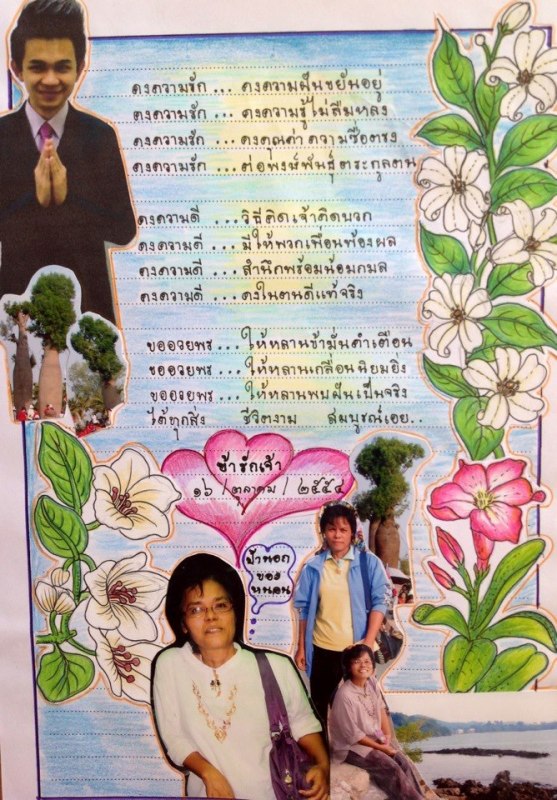 คงความรัก ... คงความฝันขยันอยู่
คงความรัก ... คงความรู้ไม่ลืมหลง
คงความรัก ... คงคุณค่าความซื่อตรง
คงความรัก ...ต่อพงษ์พันธุ์ตระกูลตน
คงความดี ...วิธีคิดเจ้าคิดบวก
คงความดี ...มีให้พวกเพื่อนพ้องผล
คงความดี ...สำนึกพร้อมน้อมกมล
คงความดี ...คงในตนดีแท้จริง
ขออวยพร ...ให้หลานข้ามั่นคำเตือน
ขออวยพร ...ให้หลานเกลื่อนนิยมยิ่ง
ขออวยพร ...ให้หลานพบฝันเป็นจริง
ได้ทุกสิ่ง ชีวิตงาม สมบูรณ์เอย..
ข้ารักเจ้า
๑๖ / ตุลาคม / ๒๕๕๔
ป้านอก
ของ
หนอน